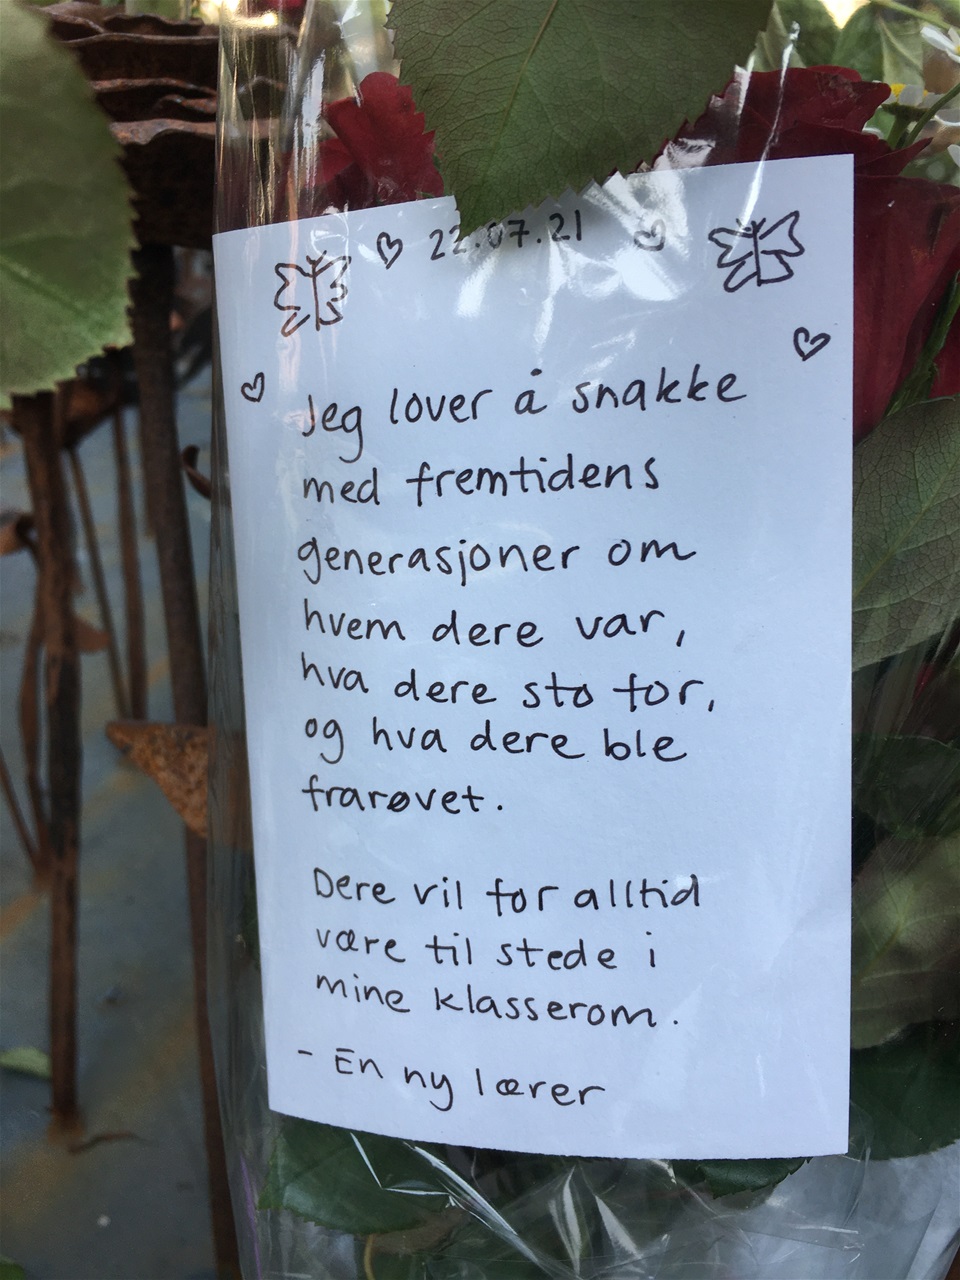 22.07.21
Jeg lover å snakke
med fremtidens
generasjoner om
hvem dere var,
hva dere sto for,
og hva dere ble
frarøvet.
Dere vil for alltid
være til stede i
mine klasserom.
- En ny lærer